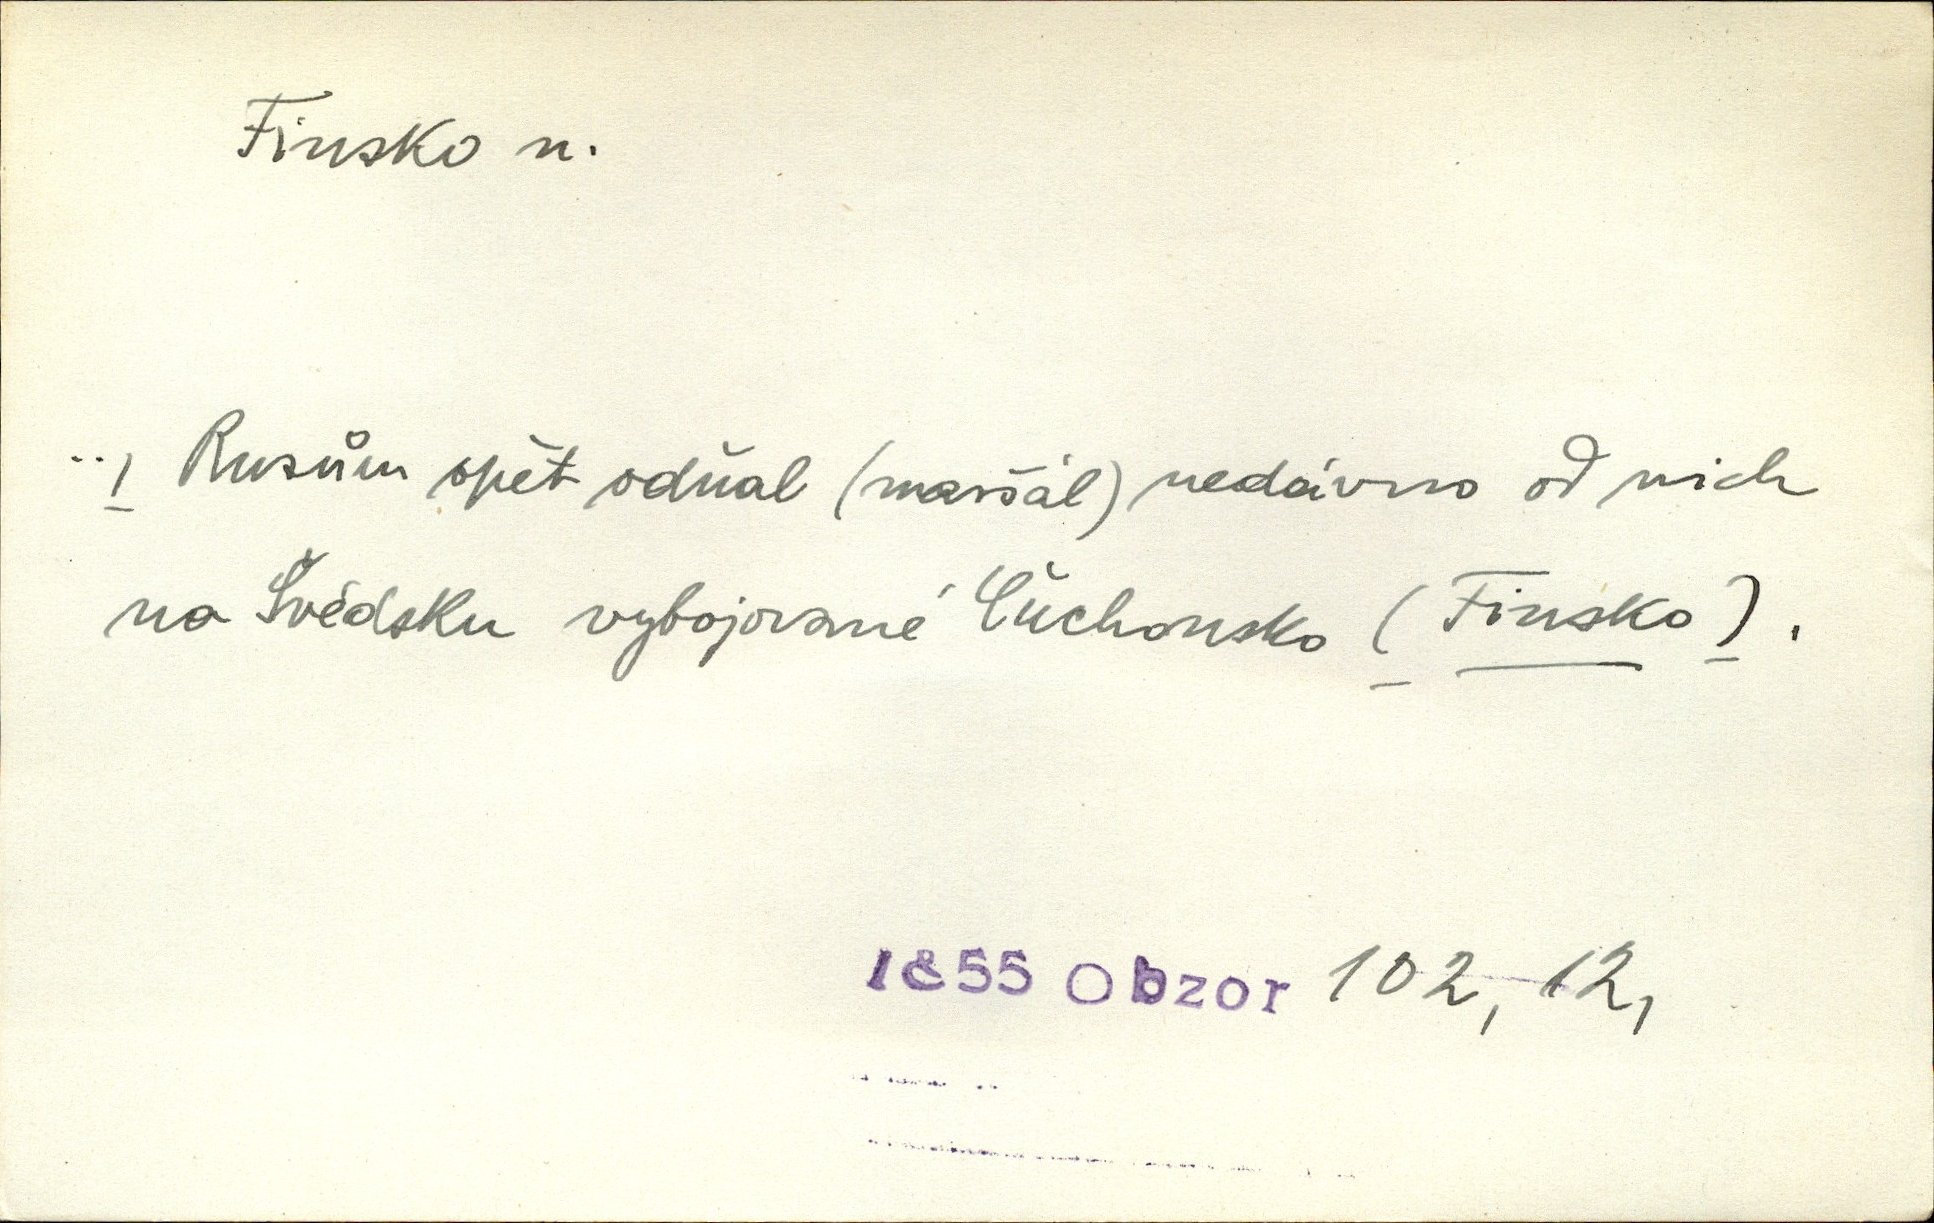 Finsko n.
.., Rusům opět odňal (maršál) nedávno od nich
na Švédsku vybojované Čuchonsko (Finsko).
1855 Obzor 102, 12,